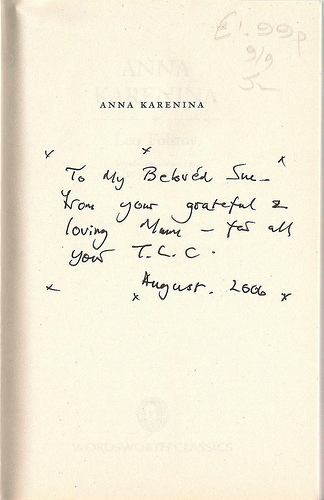 £1.99p
9/9
ANNA KARENINA
To My Beloved Sue –
From your grateful &
loving Mum – for all
your T.L.C.
August. 2006
WORDSWORTH CLASSICS